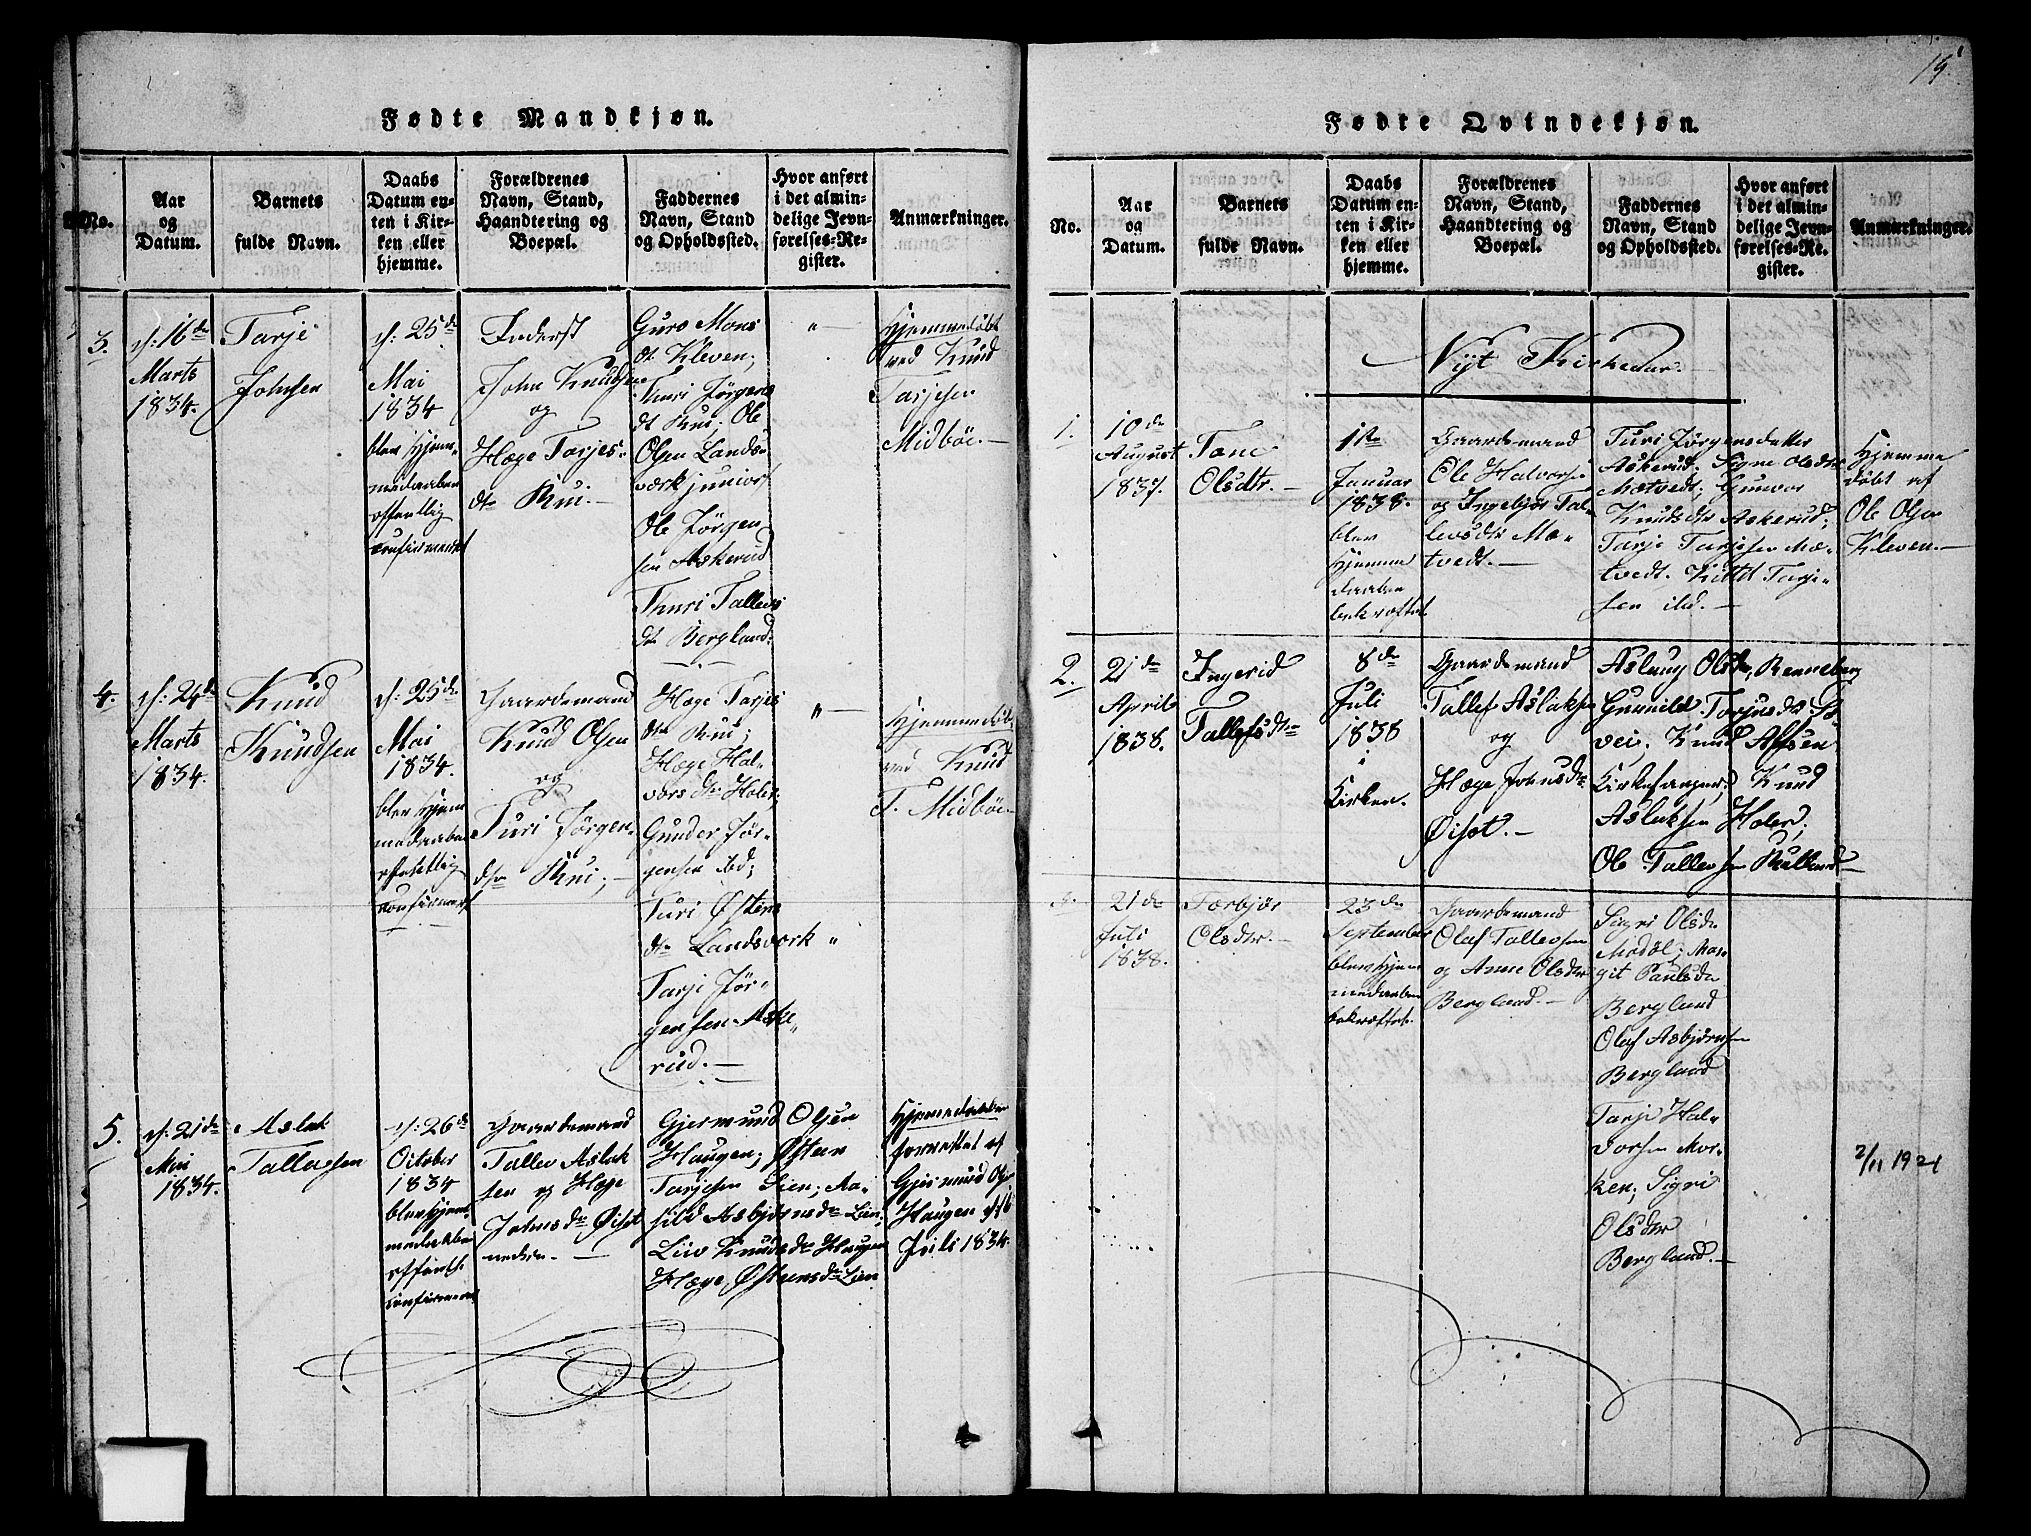 15
Fødte Mandkjøn.
No.
Aar
og
Datum.
Barnets
fulde Navn.
Daabs
Datum en-
ten i Kir-
ken eller
hjemme.
Forældrenes
Navn, Stand,
Haandtering og
Boepæl.
Faddernes
Navn, Stand
og Opholdssted.
Hvor anført
i det almin-
delige Jevn-
førelses-Re-
gister.
Anmærkninger.
3.
d: 16de
Marts
1834.
Tarje
Johnsen
d: 25de
Mai
1834
blev Hjem-
medaaben
offentlig
confirmeret
Inderst
John Knudsen
og
Hæge Tarjes-
dtr Rui.
Guro Mons
dt Kleven;
Thuri Jørgens
dt Rui; Ole
Olsen Lands-
værk junior,
Ole Jørgen
sen Askerud
Thuri Tallevs
dt Bergland.
"
Hjemmedøbt
ved Knud
Tarjesen
Midbøe.
4.
d: 24de
Marts
1834.
Knud
Knudsen
d: 25de
Mai
1834.
blev Hjem
medaaben
offentlig
confirmert
Gaardemand
Knud Olsen
og
Turi Jørgen-
dtr Rui;
Hæge Tarjes
dtr Rui;
Hæge Hal-
vors dtr Holer;
Gunder Jør-
gensen ibd;
Turi Østens
dtr Landsværk
Tarje Jør-
gensen Aske-
rud.
"
Hjemmedøbt
ved Knud
T. Midbøe.
5.
d: 21de
Mai
1834.
Aslak
Tallevsen
d: 26de
October
1834
blev Hjem-
medaaben
offentl.
confirmeret
Gaardemand
Tallev Aslak
sen og Hæge
Johnsdtr Øiset
nedre.
Gjermund Olsen
Haugen; Østen
Tarjesen Lien; Aa-
sild Asbjørnsdtr Lien;
Liv Knudsdtr Haugen
Hæge Østensdtr Lien
Hjemmedaaben
forrettet af
Gjermund Olsen
Haugen d 16
Juli 1834.
Fødte Qvindekjøn.
No.
Aar
og
Datum.
Barnets
fulde Navn.
Daabs
Datum en-
ten i Kir-
ken eller
hjemme.
Forældrenes
Navn, Stand,
Haandtering og
Boepæl.
Faddernes
Navn, Stand
og Opholdssted.
Hvor anført
i det almin-
delige Jevn-
førelses-Re-
gister.
Anmærkninger.
Nyt Kirkeaar.
1.
10de
August
1837.
Tone
Olsdtr.
1ste
Januar
1838.
blev
Hjemme
daaben
bekræftet
Gaardemand
Ole Halvorsen
og Ingebjør Tal-
levsdtr Mæ-
tvedt.
Turi Jørgensdatter
Askerud; Signe Olsdtr
Mætvedt; Gunvor
Knudsdtr Askerud;
Tarje Tarjesen Mæ-
tvedt. Kittil Tarje-
sen ibd.
Hjemme
døbt af
Ole Olsen
Kleven.
2.
21de
April
1838.
Ingerid
Tallefsdtr
8de
Juli
1838
i
Kirken.
Gaardemand
Tallef Aslaksen
og
Hæge Johnsdtr
Øiset.
Aslaug Olsdtr Renneberg
Gunild Torjusdtr
Knud
Kirkesanger; Knud
Aslaksen Holer;
Ole Tallevsen
3.
21de
Juli
1838.
Torbjør
Olsdtr.
23de
September
blev Hjem
medaaben
bekræftet.
Gaardemand
Olaf Tallevsen
og Anne Olsdtr
Bergland.
Sigri Olsdtr
Modøl; Mar-
git Paulsdtr
Bergland
Olaf Asbjørnsen
Bergland
Tarje Hal-
vorsen Mor-
ken; Sigri
Olsdtr
Bergland.
2/11 1921